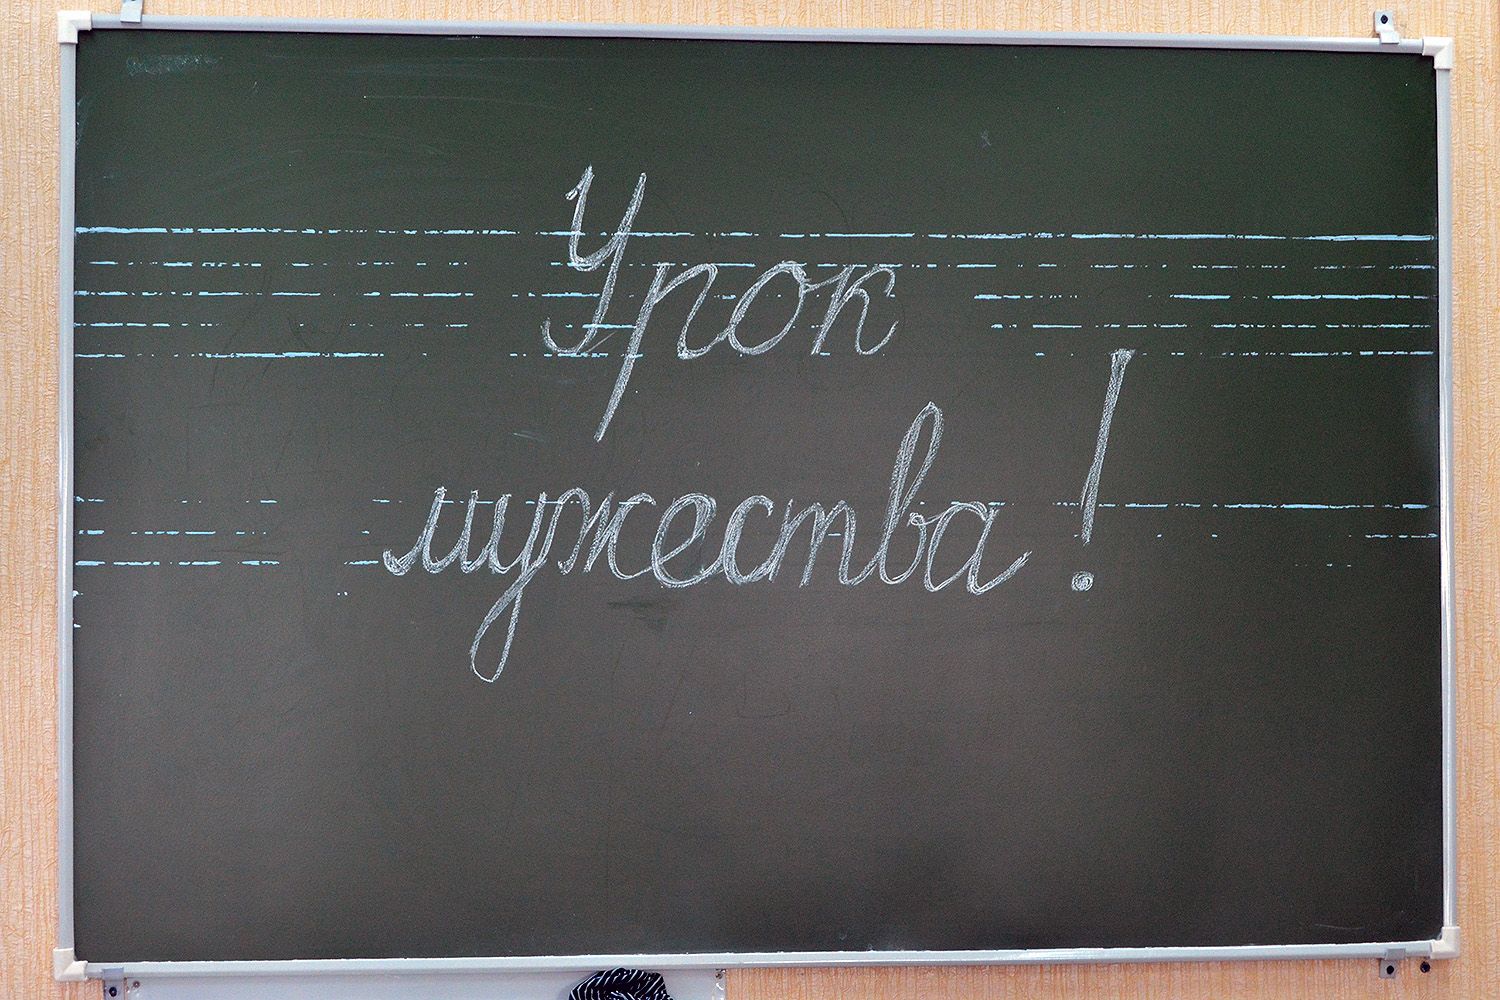 Урок
мужества!